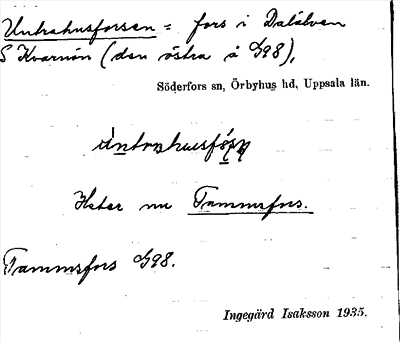 Untrahusforsen = fors i Dalälven
S Kvarnön (den östra å G98),
Söderfors sn, Örbyhus hd, Uppsala län.
Heter nu Tammsfors.
Tammsfors G98.
Ingegärd Isaksson 1935.